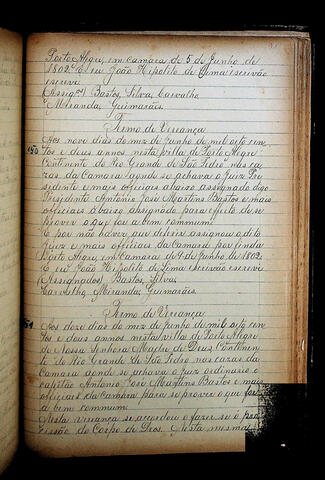 Porto Alegre, em camara de 5 de Junho de
1802. E eu João Hipolito de Lima escrivão
escrevi
(Assign.) Bastos, Silva, Carvalho
Miranda Guimarães
Termo de Vereança
Aos nove dias do mez de Junho de mil oito cen
tos e dous annos nesta villa de Porto Alegre
Continente do Rio Grande de São Pedro nas ca
zas da Camara aonde se achava o Juiz Pre
sidente e mais officiaes abaixo assignado digo
Presidente Antonio José Martins Bastos e mais
officiaes abaixo assignada para effeito de se
prover o que fou a bem commum
E por não haver que deferir assignou o dito
Juiz e mais officiaes da Camara por finda
Porto Alegre em Camara de 9 de Junho de 1802.
E eu João Hipolito de Lima escrivão escrevi
(Assignados) Bastos, Silva,
Carvalho, Miranda, Guimarães
Termo de Vereança
Aos doze dias do mez de Junho de mil oito cen
tos e dous annos nesta villa de Porto Alegre
de Nossa Senhora Madre de Deus Continen
te do Rio Grande de São Pedro nas cazas da
Camara aonde se achava o Juiz ordinario o
capitão Antonio José Martins Bastos e mais
officiaes da Camara para se prover o que for
a bem commum
Nesta vereança se accordou o fazer-se a pro
cissão do Corpo de Deos. Nesta mesma